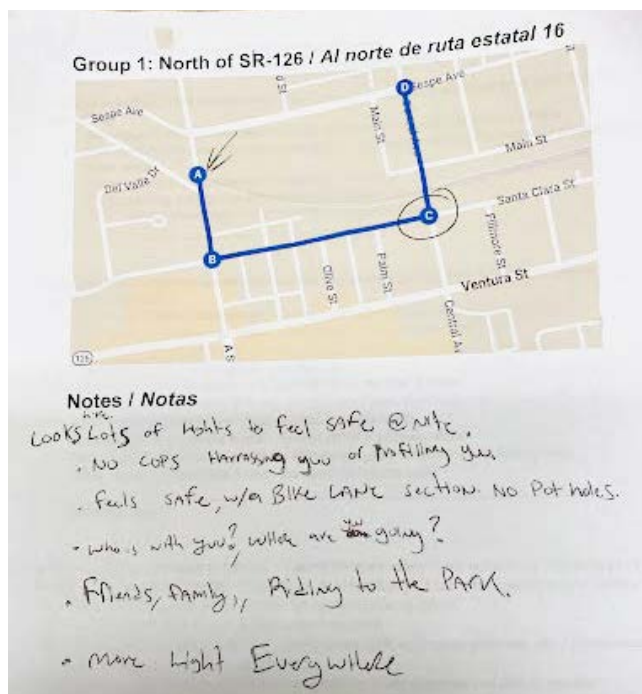 Group 1: North of SR-126 / Al norte de ruta estatal 16
Sespe Ave
Sespe Ave
D
Main St
Main St
Del Valle Dr
A
Santa Clara St
C
B
Fillmore St
Palm St
Olive St
Ventura St
Central Av
A S
126
Notes / Notas
like
Looks Lots of Lights to feel safe @ Nite.
. NO COPS Harrassing you or Profilling you
. feels safe, w/a Bike LANE section. NO Pot holes.
- who is with you? where are you going?
. Friends, family, Riding to the PARK.
• more light Everywhere